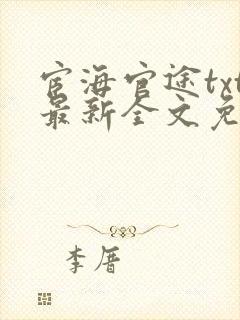 宦海官途txt
最新全文免
李厝